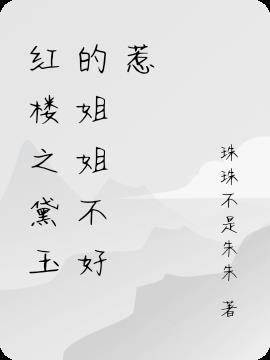 红楼之黛玉
的姐姐不好
惹
珠珠不是朱朱 著